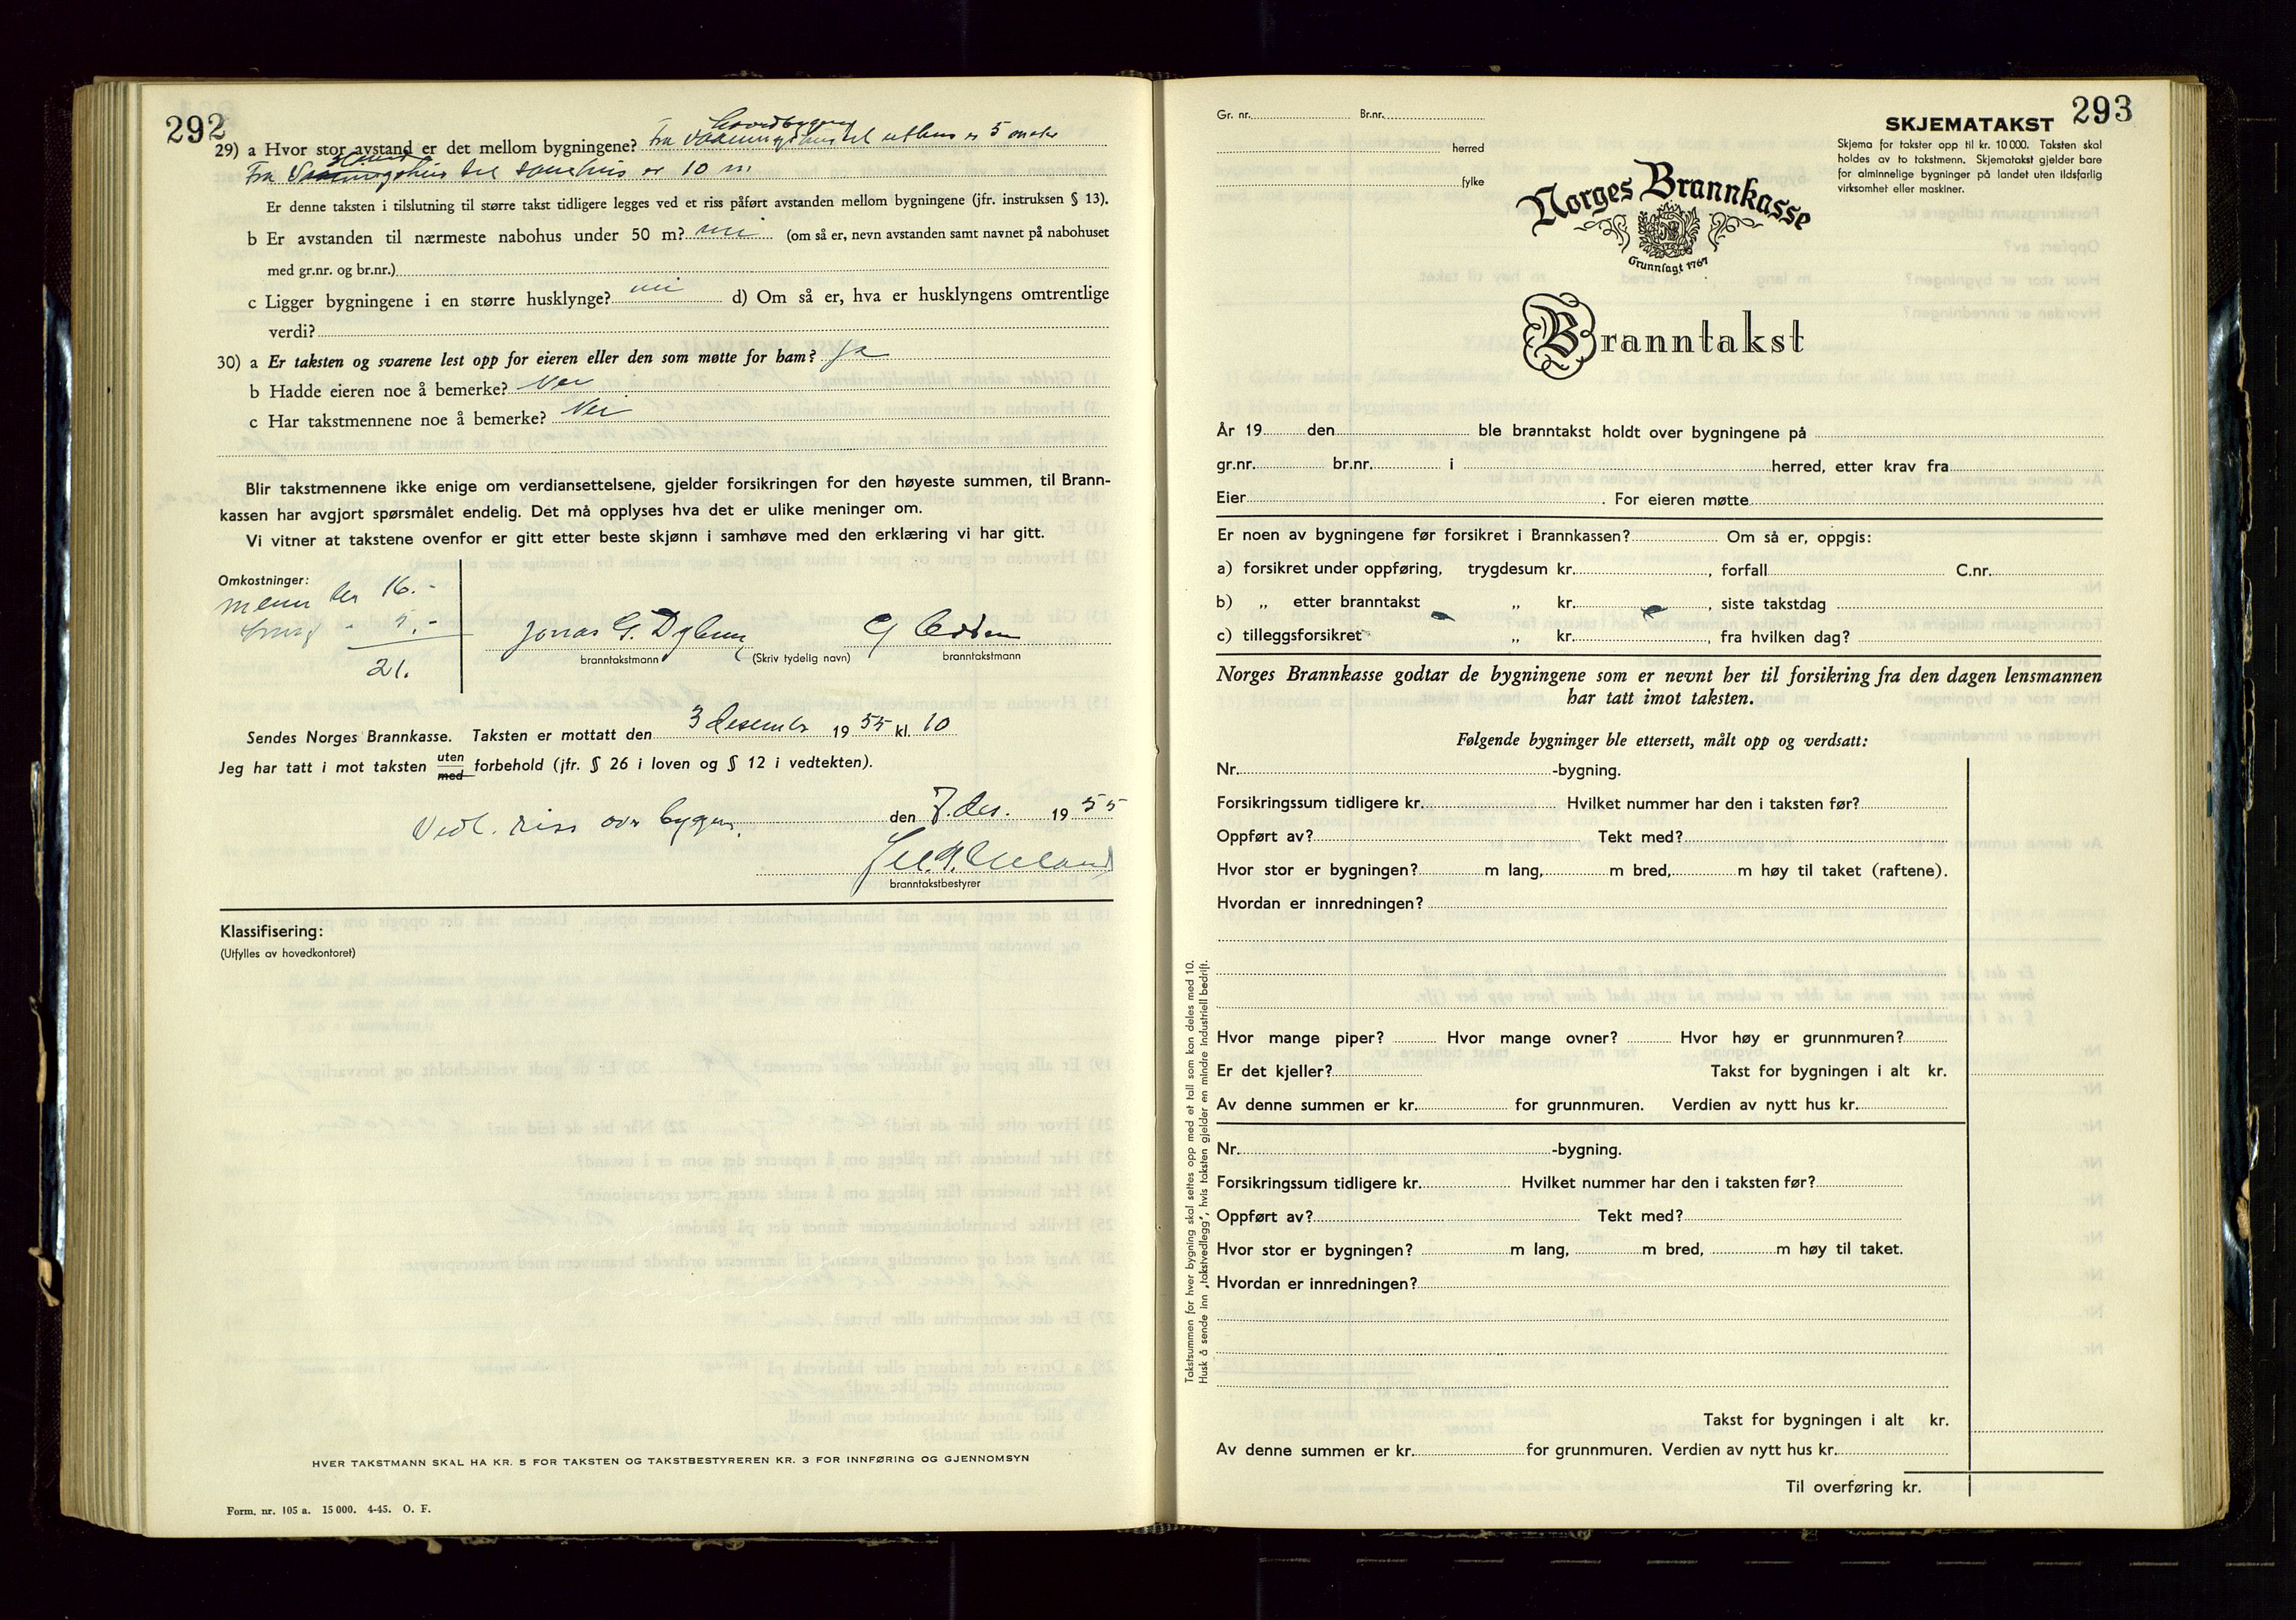 292
29) a Hvor stor avstand er det mellom bygningene? Fra Vaaningshus til uthus er 5 meter
Fra Vaaningshus til er 10 m
Er denne taksten i tilslutning til større takst tidligere legges ved et riss påført avstanden mellom bygningene (jfr. instruksen § 13).
b Er avstanden til nærmeste nabohus under 50 m? nei (om så er, nevn avstanden samt navnet på nabohuset
med gr.nr. og br.nr.)
c Ligger bygningene i en større husklynge? nei d) Om så er, hva er husklyngens omtrentlige
verdi?
30) a Er taksten og svarene lest opp for eieren eller den som møtte for ham? Ja
b Hadde eieren noe å bemerke? Nei
c Har takstmennene noe å bemerke? Nei
Blir takstmennene ikke enige om verdiansettelsene, gjelder forsikringen for den høyeste summen, til Brann-
kassen har avgjort spørsmålet endelig. Det må opplyses hva det er ulike meninger om.
Vi vitner at takstene ovenfor er gitt etter beste skjønn i samhøve med den erklæring vi har gitt.
Omkostninger:
menn kr 16.-
- 5.-
21.
Jonas G.
branntakstmann (Skriv tydelig navn) branntakstmann
Sendes Norges Brannkasse. Taksten er mottatt den 3 desember 1955 kl. 10
Jeg har tatt i mot taksten uten med forbehold (jfr. § 26 i loven og § 12 i vedtekten).
Vedl. riss over bygn. den 7. des. 1955
branntakstbestyrer
Klassifisering:
(Utfylles av hovedkontoret)
HVER TAKSTMANN SKAL HA KR. 5 FOR TAKSTEN OG TAKSTBESTYREREN KR. 3 FOR INNFØRING OG GJENNOMSYN
Form. nr. 105 a. 15 000. 4-45. O. F.
293
Gr. nr. Br.nr.
herred
fylke
SKJEMATAKST
Skjema for takster opp til kr. 10 000. Taksten skal
holdes av to takstmenn. Skjematakst gjelder bare
for alminnelige bygninger på landet uten ildsfarlig
virksomhet eller maskiner.
Norges Brannkasse
Grunnlagt 1767
Branntakst
År 19 den ble branntakst holdt over bygningene på
gr.nr. br.nr. i herred, etter krav fra
Eier . For eieren møtte
Er noen av bygningene før forsikret i Brannkassen? Om så er, oppgis:
a) forsikret under oppføring, trygdesum kr. , forfall C.nr.
b) „ etter branntakst „ kr. , siste takstdag
c) tilleggsforsikret „ kr. , fra hvilken dag?
Norges Brannkasse godtar de bygningene som er nevnt her til forsikring fra den dagen lensmannen
har tatt imot taksten.
Følgende bygninger ble ettersett, målt opp og verdsatt:
Nr. -bygning.
Forsikringssum tidligere kr. Hvilket nummer har den i taksten før?
Oppført av? Tekt med?
Hvor stor er bygningen? m lang, m bred, m høy til taket (raftene).
Hvordan er innredningen?
Hvor mange piper? Hvor mange ovner? Hvor høy er grunnmuren?
Er det kjeller? Takst for bygningen i alt kr.
Av denne summen er kr. for grunnmuren. Verdien av nytt hus kr.
Nr. -bygning.
Forsikringssum tidligere kr. Hvilket nummer har den i taksten før?
Oppført av? Tekt med?
Hvor stor er bygningen? m lang, m bred, m høy til taket.
Hvordan er innredningen?
Takst for bygningen i alt kr.
Av denne summen er kr. for grunnmuren. Verdien av nytt hus kr.
Til overføring kr.
Takstsummen for hver bygning skal settes opp med et tall som kan deles med 10.
Husk å sende inn „takstvedlegg", hvis taksten gjelder en mindre industriell bedrift.